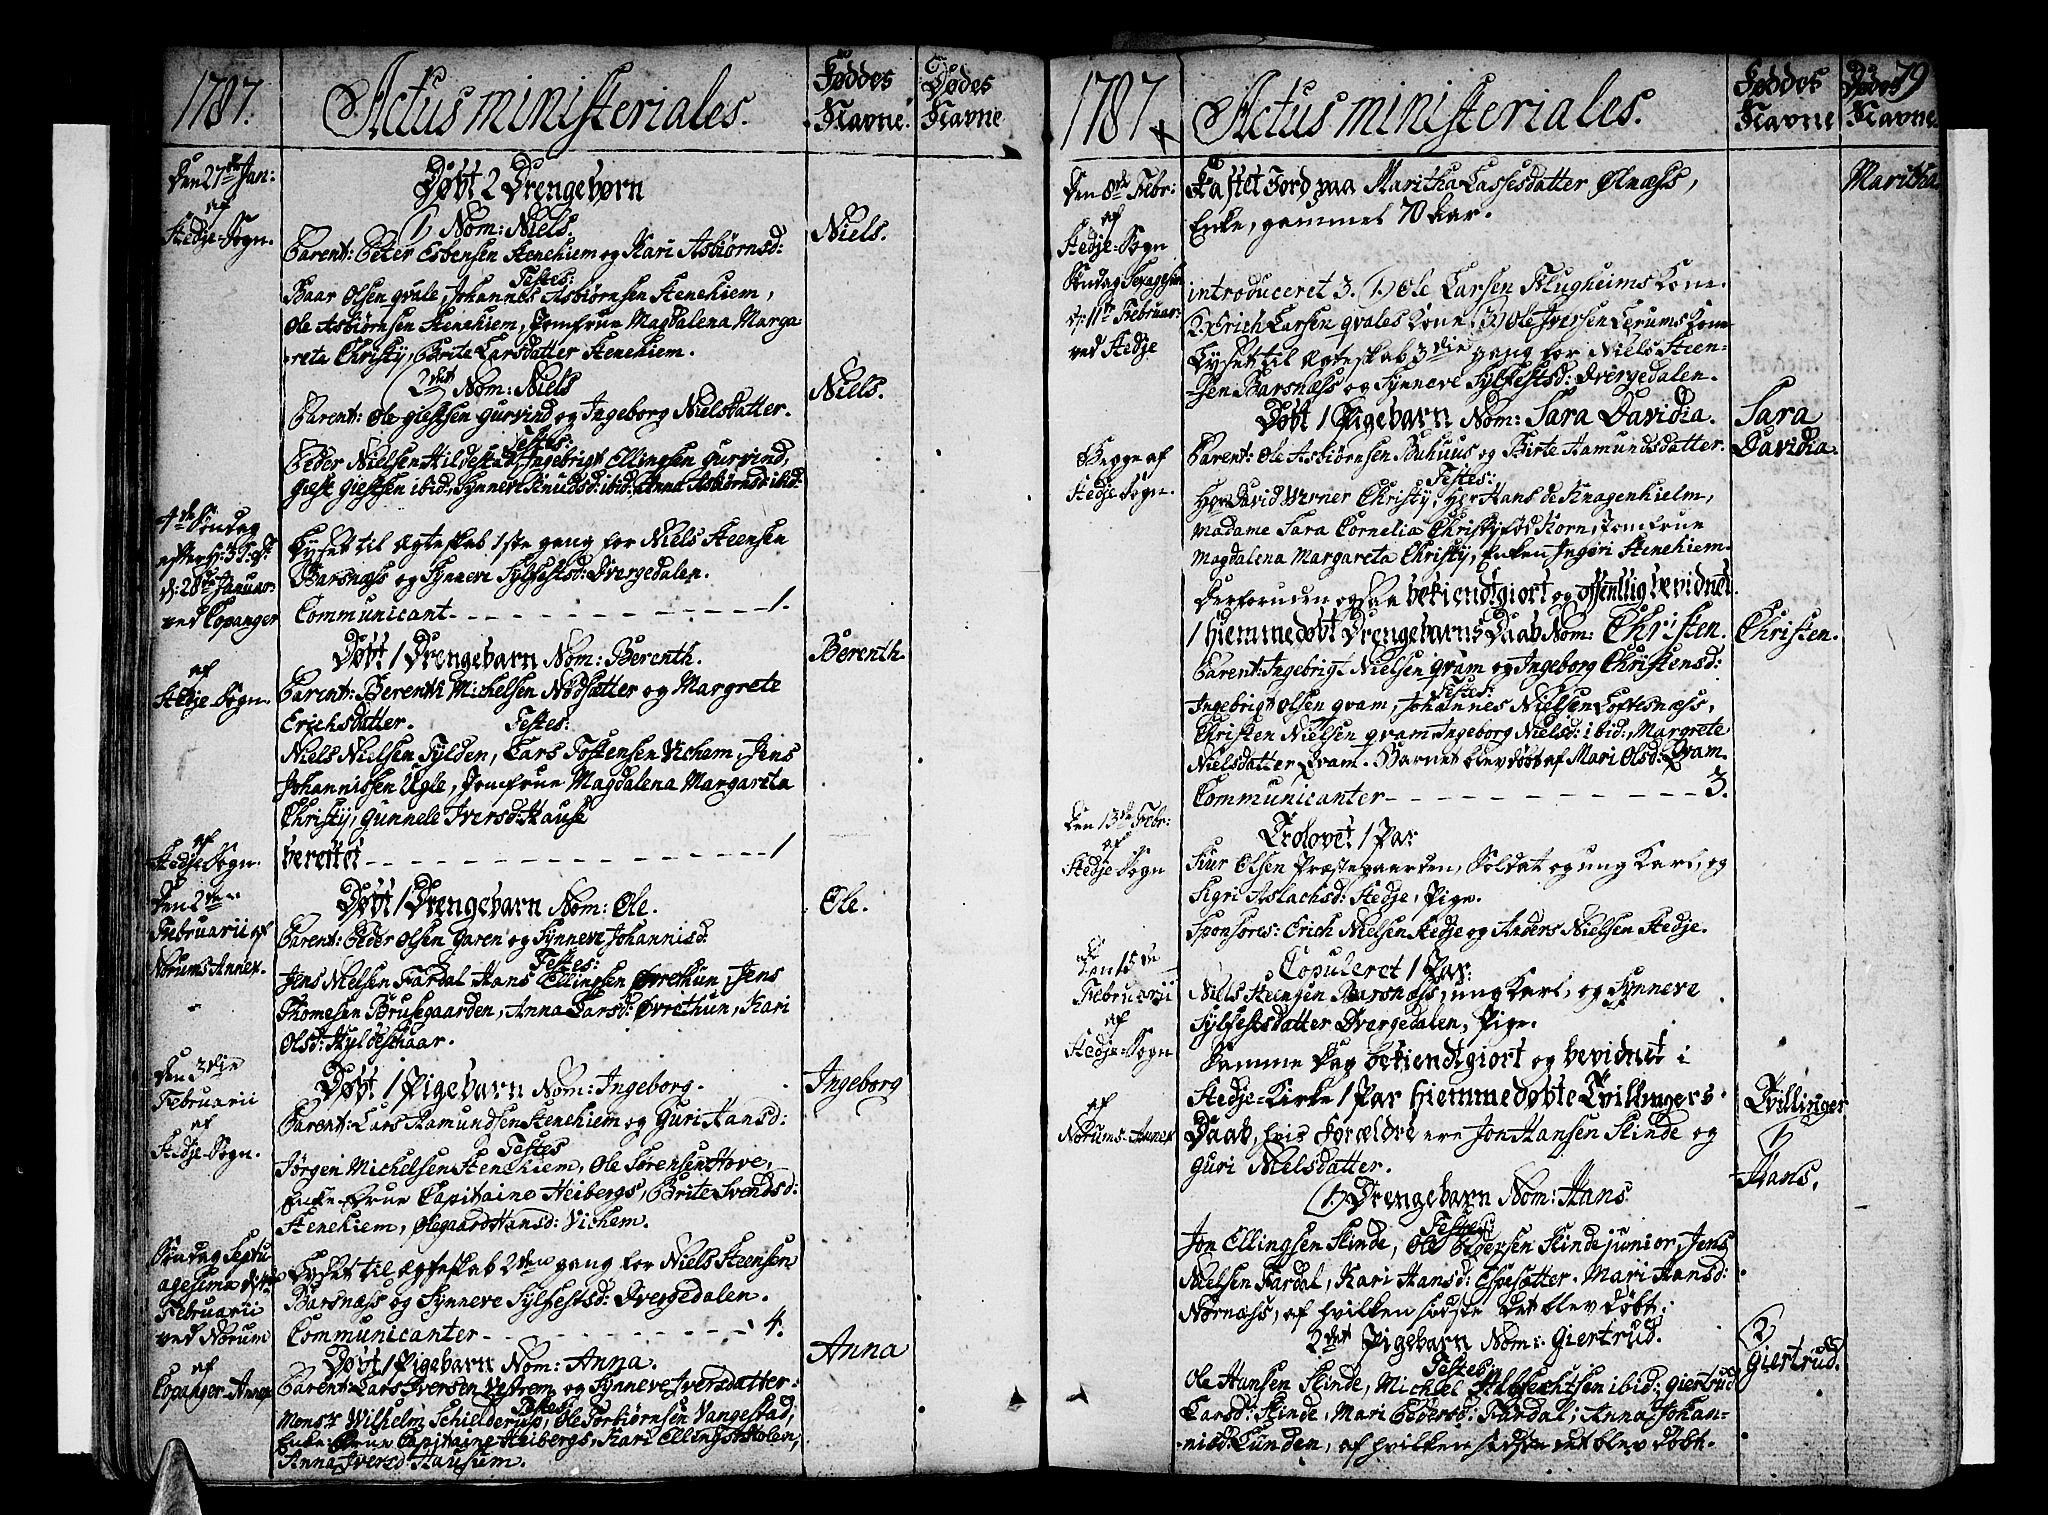 1787.
Actus ministeriales.
Føddes Navne.
Dødes Navne
Den 27de Jan:
af
Stedje-Sogn.
Døbt 2 Drengebørn
1) Nom: Niels.
Niels.
Parent: Peter Esbensen Stenehiem og Kari Asbiørnsd:
Testes:
Baar Olsen qvale, Johannes Asbiørnsen Stenehiem,
Ole Asbiørnsen Stenehiem, Jomfrue Magdalena Marga
reta Christy, Brite Larsdatter Stenehiem.
2det Nom: Niels
Niels.
Parent: Ole giestsen gurvind og Ingeborg Nielsdatter.
Testes:
Peder Nielsen Hildestad, Ingebrigt Ellingsen gurvind,
giest giestsen ibid: Synneve Knudsd: ibid: Anna Asbiørnsd: ibid:
4de Søndag
d: 28de Januar
ved Copanger
Lyset til Ægteskab 1ste gang for Niels Steensen
Barsnæss og Synneve Sylfestsd: Dvergedalen.
Communicant - - - 1.
af
Stedje-Sogn.
Døbt 1 Drengebarn Nom: Berenth.
Berenth.
Parent: Berenth Michelsen Nødsætter og Margrete
Erichsdatter. Testes:
Niels Nielsen Tylden, Lars Tostensen Vichem, Jens
Johannissen Ugle, Jomfrue Magdalena Margareta
Christy, Gunnele Iversd: Hause
af
Stedje Sogn.
berettet - - - 1
Den 2den
Februarii af
Norums Annex.
Døbt 1 Drengebarn Nom: Ole.
Ole.
Parent: Peder Olsen Garen og Synneve Johannisd:
Testes:
Jens Nielsen Fardal, Hans Ellingsen Øvrethun, Jens
Thomesen Brusegaarden, Anna Larsd: Øvrethun, Kari
Olsd: Hyldeschaar.
Den 3die
Februarii
af
Stedje-Sogn.
Døbt 1 Pigebarn Nom: Ingeborg.
Ingeborg
Parent: Lars Hamundsen Stenehiem og Guri Hansd:
Testes
Jørgen Michelsen Stenehiem, Ole Sørensen Hove,
Enke-Frue Capitaine Heibergs, Brite Svendsd:
Stenehiem, Olegaard Hansd: Vichem.
Søndag Septu
agesima d: 4de
Februarii
ved Norum
Lyset til Ægteskab 2den gang for Niels Steensen
Barsnæss og Synneve Sylfestsd: Dvergedalen.
Communicanter - - - 4.
af
Copanger-Annex
Døbt 1 Pigebarn Nom: Anna.
Anna
Parent: Lars Iversen Vestrem og Synneve Iversdatter:
Testes:
Monsr Wilhelm Schielderup, Ole Torbiørnsen Vangestad,
Enke-Frue Capitaine Heibergs, Kari Ellingsd: Stolen,
Anna Iversd: Hausum.
1787
Actus ministeriales.
Føddes Navne
Dødes Navne.
79
Den 8de Febr:
af
Stedje-Sogn
Kastet Jord paa Maritha Lassesdatter Ølnæss,
Maritha.
Enke, gammel 70 Aar.
Søndag Sexagesim
d: 11te Februar:
ved Stedje
introduceret 3. 1) Ole Larsen Flugheims Kone.
2) Erich Larsen qvales Kone 3) Ole Iversen Lerums Kone
Lyset til Ægteskab 3die gang for Niels Steen-
sen Barsnæss og Synneve Sylfestsd: Dvergedalen.
Begge af
Stedje Sogn.
Døbt 1 Pigebarn Nom: Sara Davidia.
Sara
Davidia.
Parent: Ole Asbiørnsen Bahuus og Birte Aamundsdatter.
Testes:
Herr David Verner Christy, Herr Hans de Knagenhielm,
Madame Sara Cornelia Christy fød Korn, Jomfrue
Magdalena Margareta Christy, Enken Ingøri Stenehiem.
Derforuden ogsaa bekiendtgiort og offentlig bevidnet
1 hiemmedøbt Drengebarns Daab Nom: Christen.
Christen.
Parent: Ingebrigt Nielsen qvam og Ingeborg Christensd:
Testes:
Ingebrigt Olsen qvam, Johannes Nielsen Loftesnæss,
Christen Nielsen qvam, Ingeborg Nielsd: ibid: Margrete
Nielsdatter Qvam. Barnet blev døbt af Mari Olsd: Qvam.
Communicanter - - - 3.
Den 13de Febr:
af
Stedje-Sogn
Trolovet 1 Par
Siur Olsen Præstegaarden, Soldat og ung Karl, og
Sigri Aslachsd: Stedje, Pige.
Sponsores: Erich Nielsen Stedje og Anders Nielsen Stedje.
Den 15de
Februarii
af
Stedje-Sogn
Copuleret 1 Par:
Niels Steensen Barsnæss, ung Karl, og Synneve
Sylfestsdatter Dvergedalen, Pige.
Samme Dag bekiendtgiort og bevidnet i
af
Norums-Annex
Stedje-Kirke 1 Par hiemmedøbte Tvillingers
Tvillinger
Daab, hvis Forældre ere Jon Hansen Slinde og
Guri Nielsdatter.
1) Drengebarn Nom: Hans.
1)
Hans.
Testes:
Jon Ellingsen Slinde, Ole Pedersen Slinde junior, Jens
Nielsen Fardal, Kari Hansd: Espesætter. Mari Hansd:
Nornæss, af hvilken sidste det blev døbt.
2det Pigebarn Nom: Giertrud.
2)
Giertrud.
Testes
Ole Hansen Slinde, Michel Halbrechtsen ibid: Giertrud
Larsd: Slinde, Mari Pedersd: Fardal, Anna Johan-
nisd: Lunden, af hvilken sidste det blev døbt.